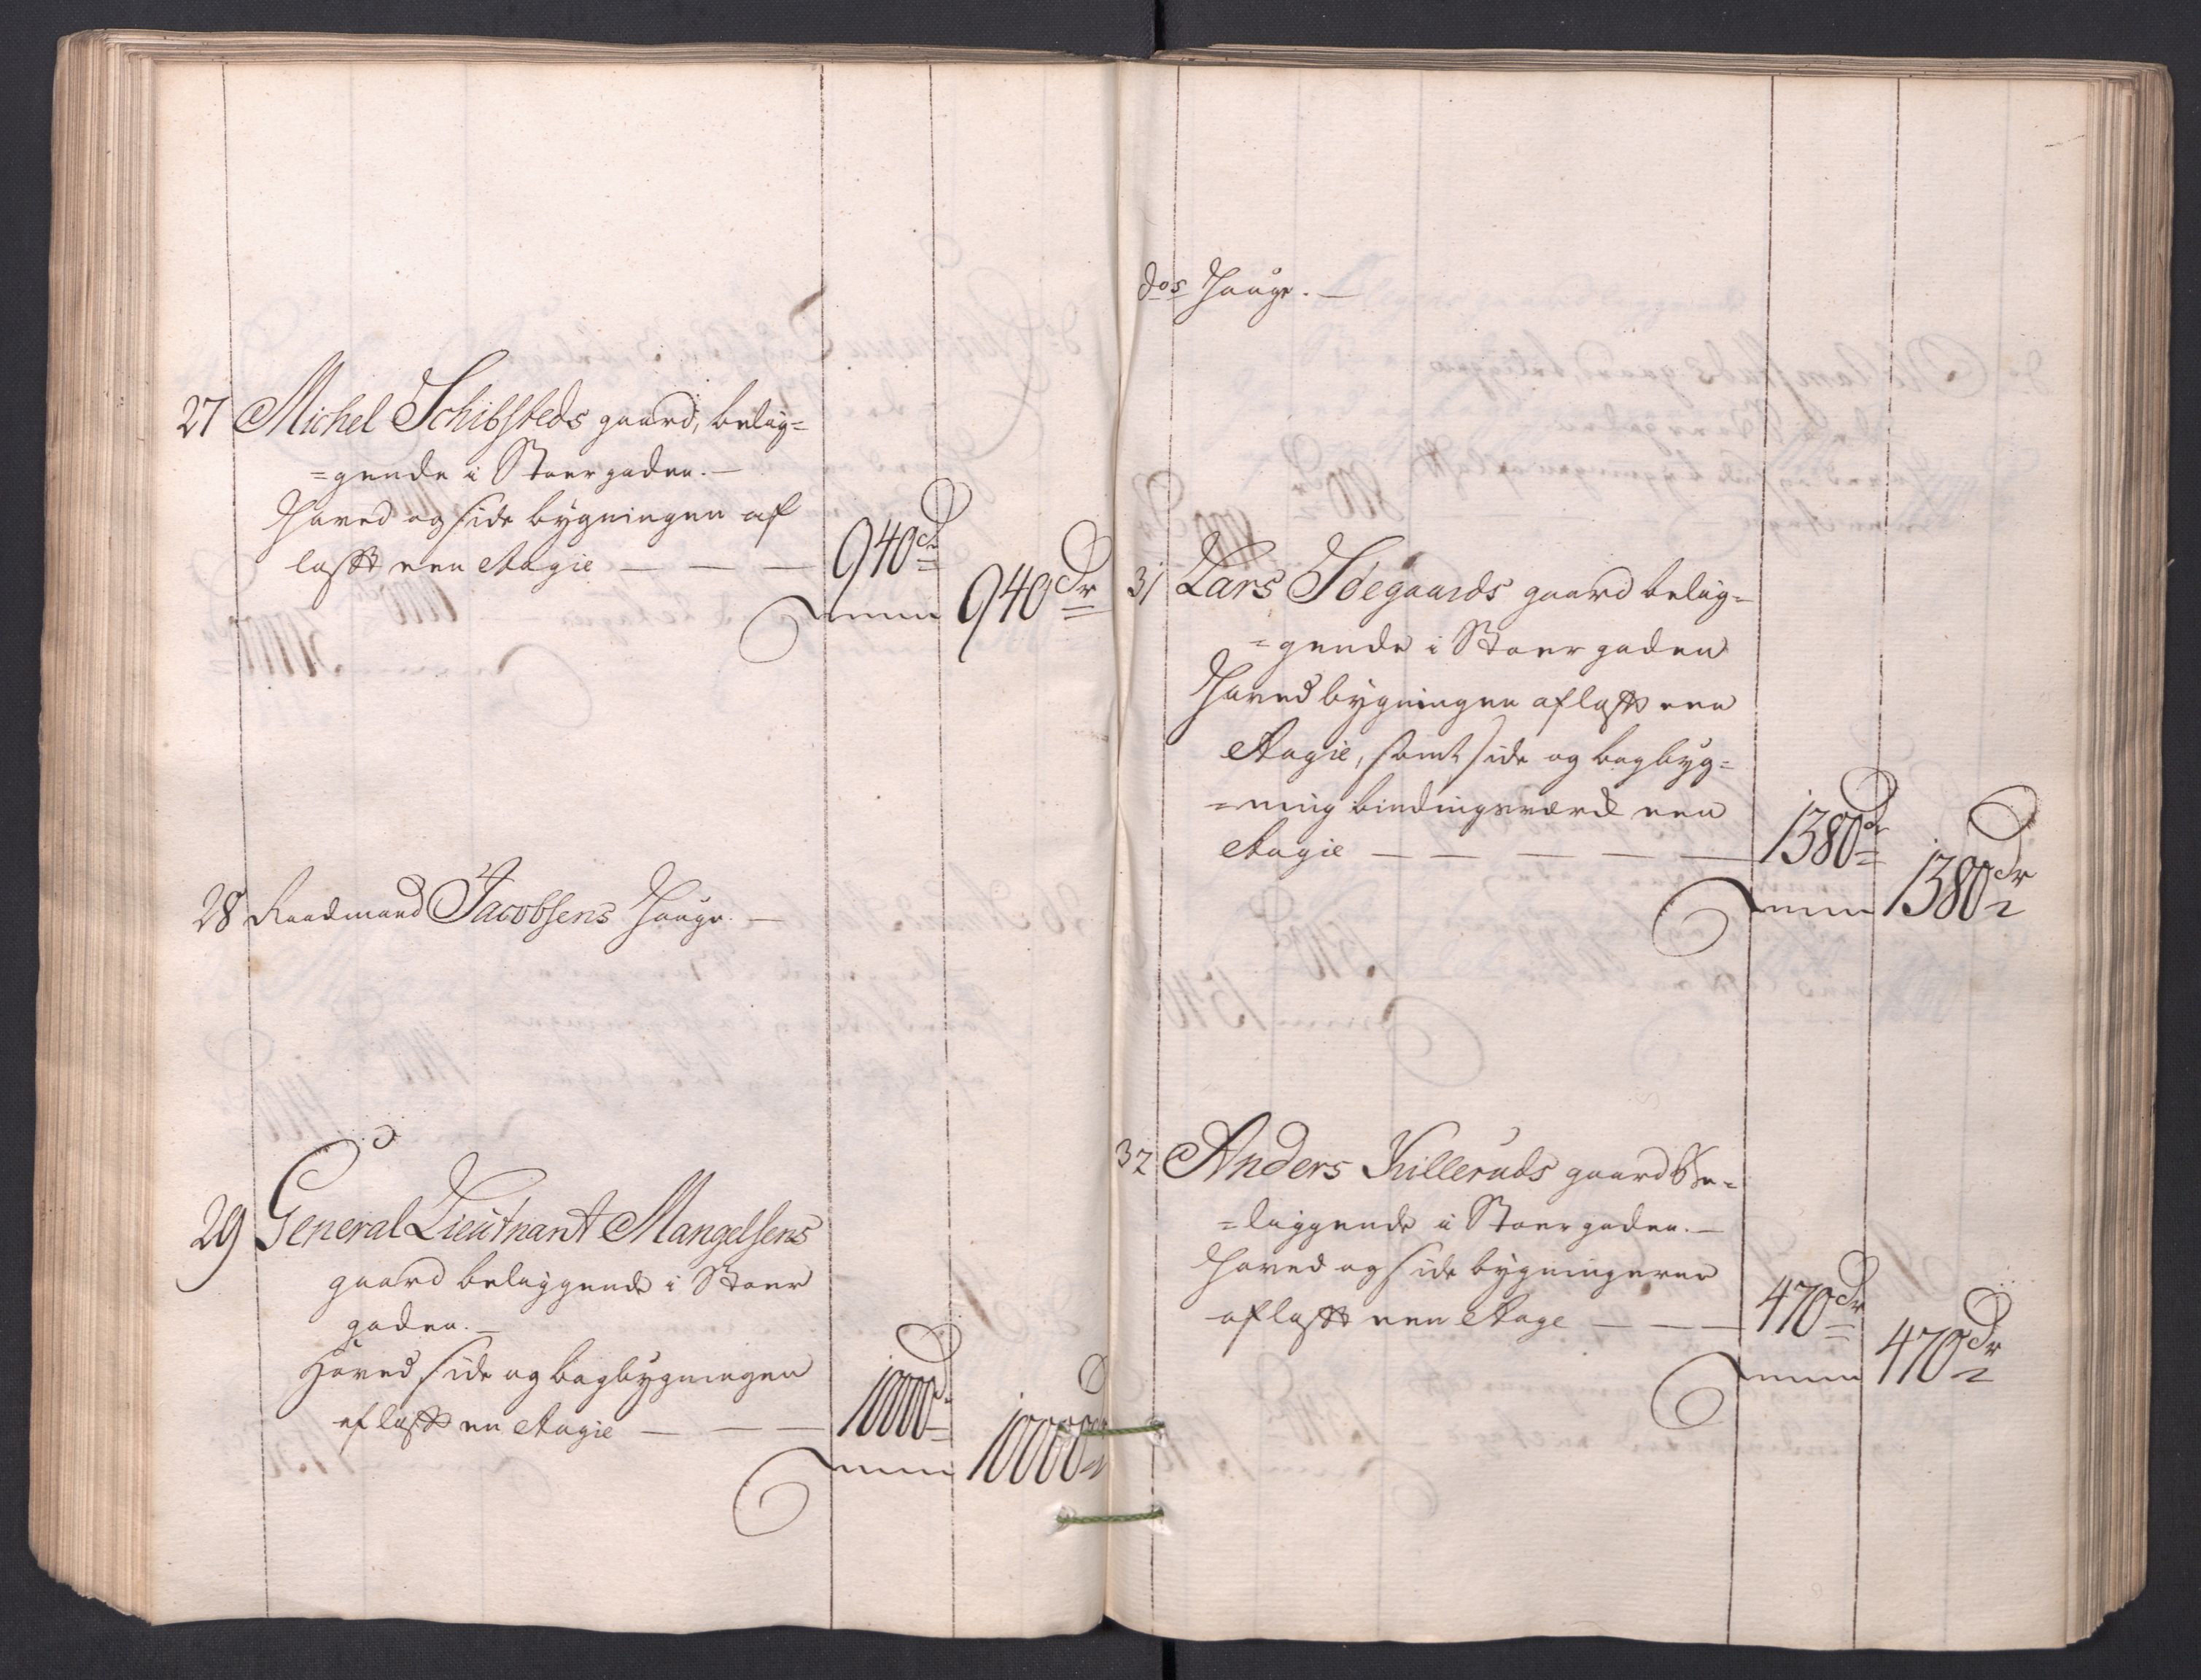 27 Michel Schibsteds gaard, belig=
=gende i Stoergaden. —
Hoved og side bygningen af
laftt een Etagie — — — 940 dr
Summa 940 dr
28 Raadmand Jacobsens Hauge. —
29 General Lieutnant Mangelsens
gaard beliggende i Stoer
gaden. —
Hoved side og bagbygningen
af laftt en Etagie — — — 10000 dr
Summa 10000 dr
dos Hauge. —
31 Lars Ødegaards gaard belig=
=gende i Stoergaden
Hovedbygningen af laftt een
Etagie, samt side og bagbyg=
=ning bindingsværck een
Etagie — — — — — 1380 dr
Summa 1380 dr
32 Anders Killeruds gaard Be=
=liggende i Stoergaden. —
Hoved og side bygningerne
af laftt een Etage — — — 470 dr
Summa 470 dr